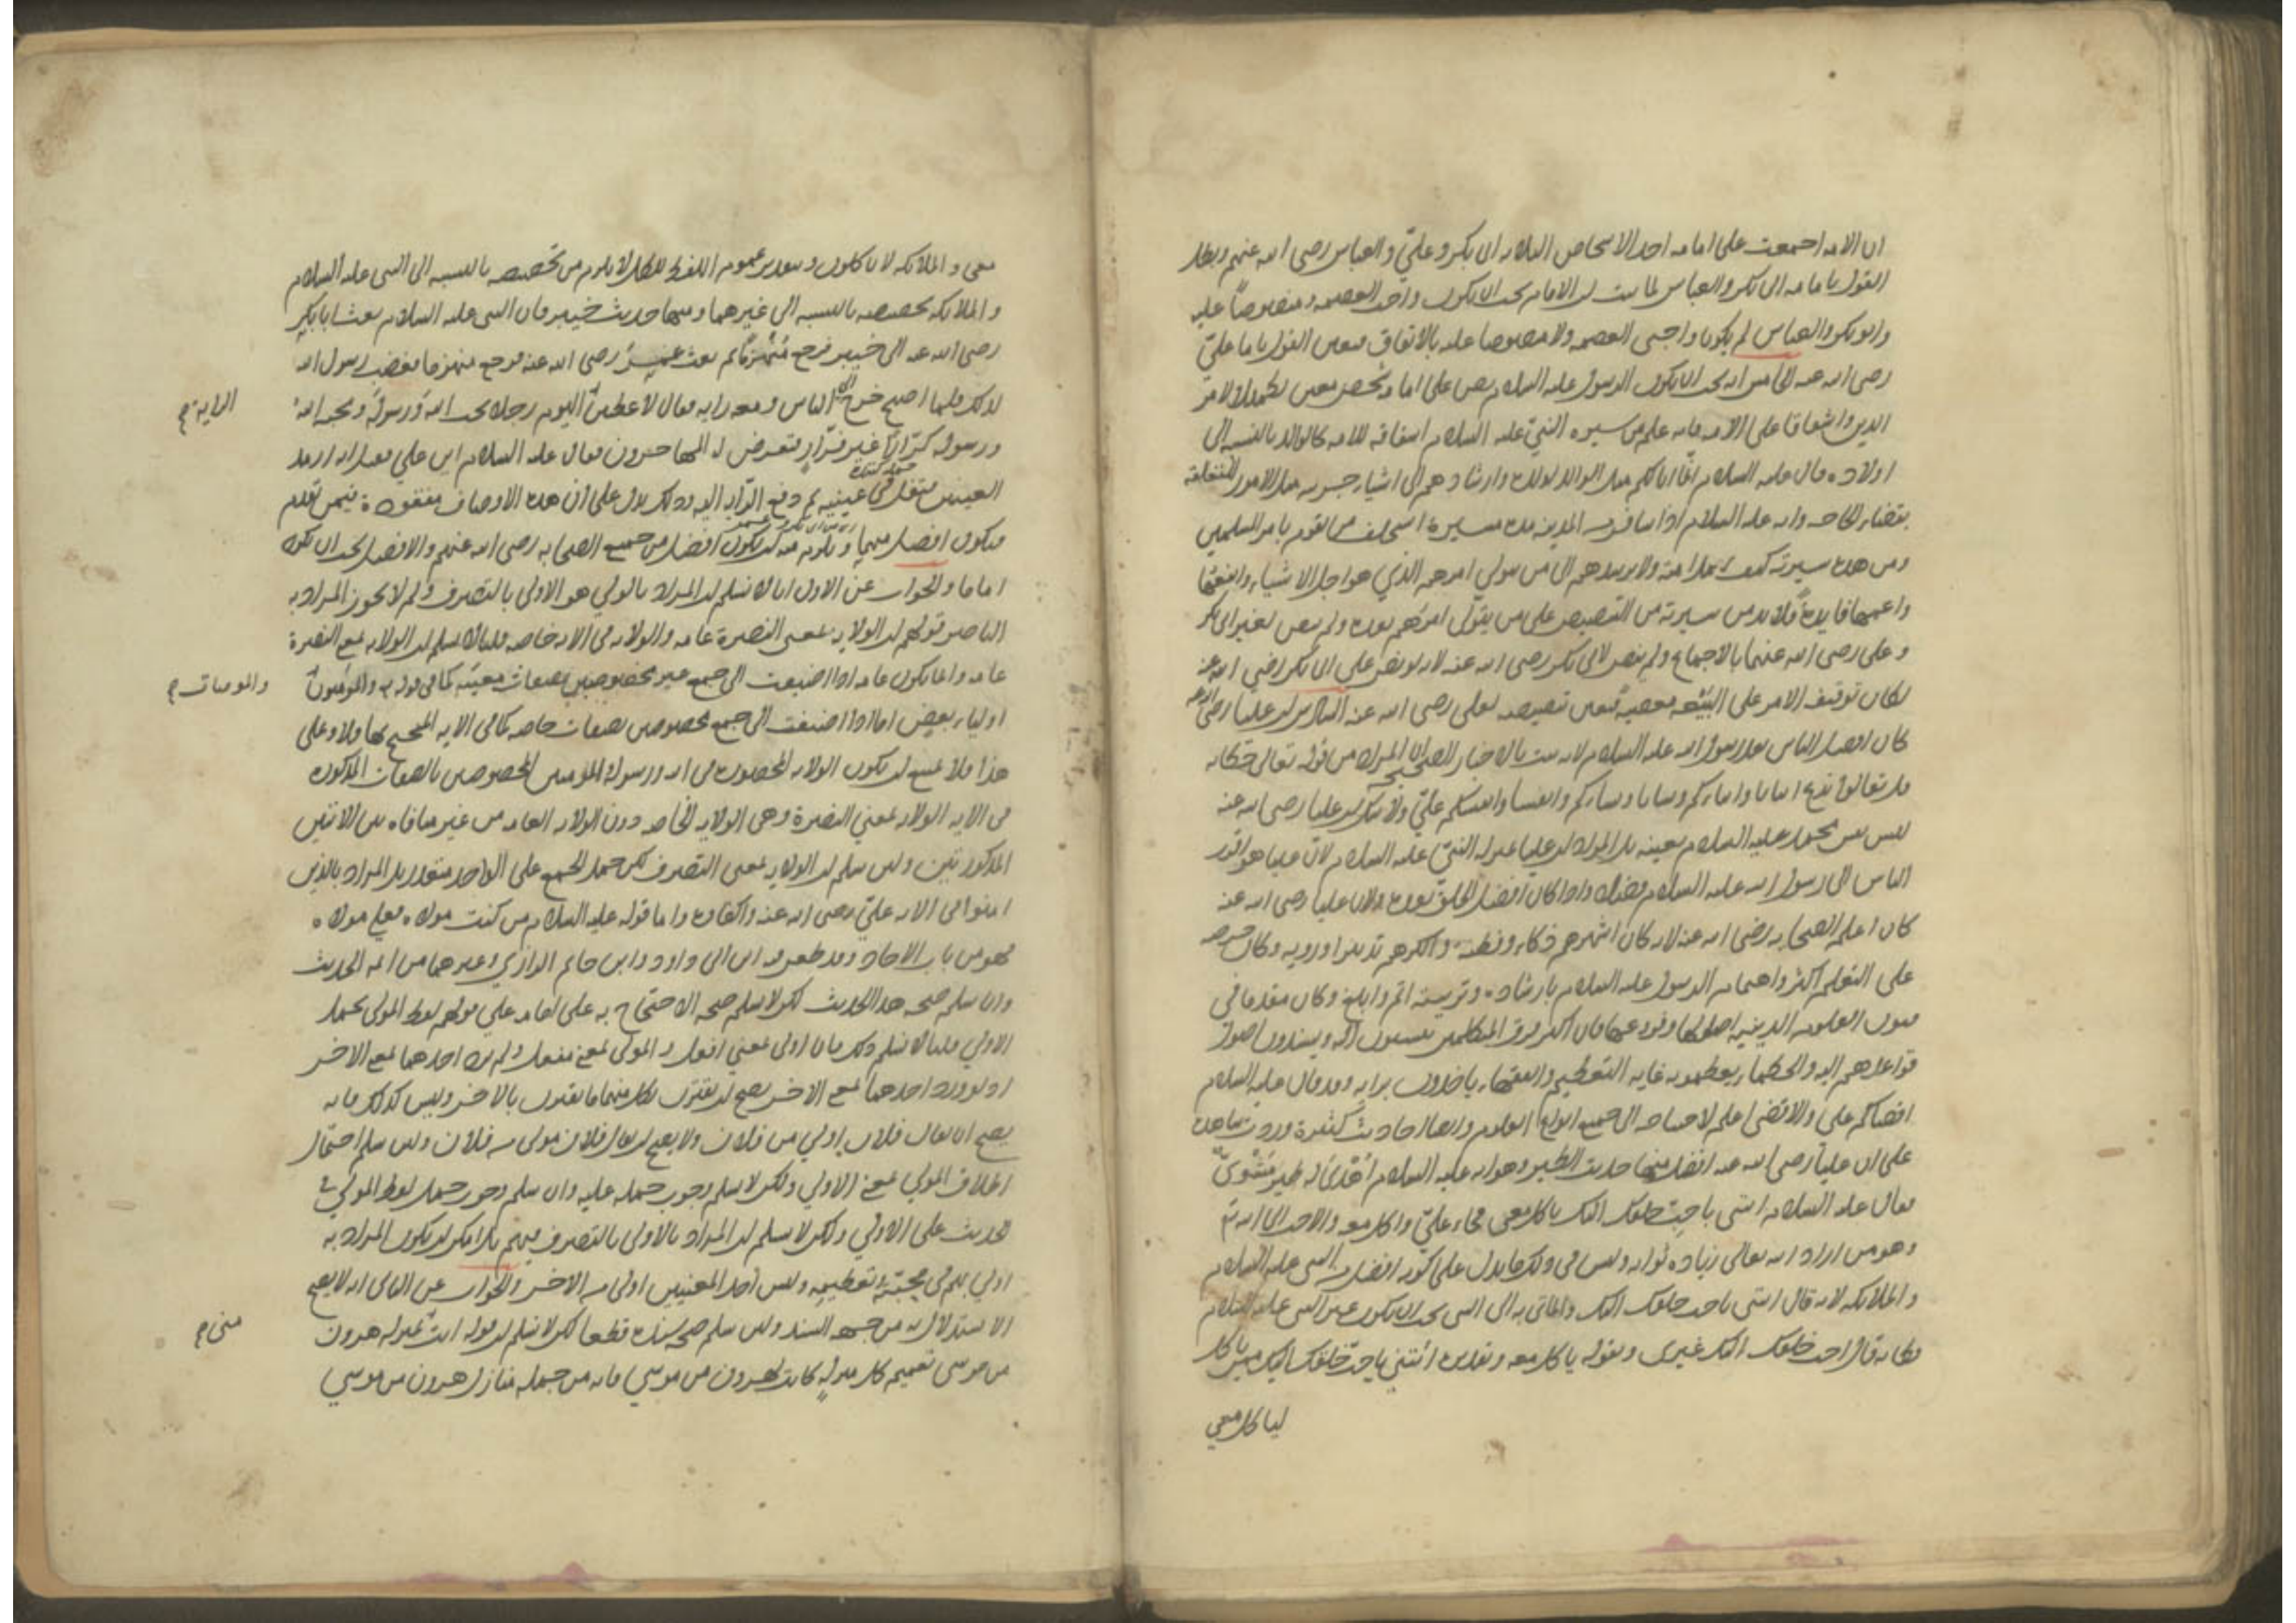 ان الامه اجمعت على امامه احد الاشخاص الثلاثه ابى بكر وعليّ والعباس رضى الله عنهم وبطل
القول بامامه ابى بكر والعباس لما ثبت ان الامام يجب ان يكون واجب العصمه ومنصوصاً عليه
وابو بكر والعباس لم يكونا واجبى العصمه ولا منصوصا عليه بالاتفاق فتعين القول بامامه عليّ
رضى الله عنه الخامس انه يجب ان يكون الرسول عليه السلام نص على امامه شخص معين تكميلا لامر
الدين واشفاقا على الامه فانه علم من سيره النبيّ عليه السلام اشفاقه للامه كالوالد بالنسبه الى
اولاده قال عليه السلام انما انا لكم مثل الوالد لولده وارشادهم الى اشياء جزييه مثل الامور المتعلقه
بقضاء الحاجه وانه عليه السلام اذا سافر من المدينه مده يسيرة استخلف من يقوم بامر المسلمين
ومن هذه سيرته كيف يهمل امته ولا يرشدهم الى من يتولى امرهم الذي هو اجل الاشياء وانفعها
واعمها فايدةً فلا بد من سيرته من التنصيص على من يتولى امرهم بعده ولم ينص لغير ابى بكر
وعلى رضى الله عنهما بالاجماع ولم ينص لابى بكر رضى الله عنه لانه لو نص على ابى بكر رضي الله عنه
لكان توقيف الامر على البَيْعَه معصيه فتعين تنصيصه لعلى رضى الله عنه السادس ان عليا رضى الله عنه
كان افضل الناس بعد رسول الله عليه السلام لانه ثبت بالاخبار الصحيحه ان المراد من قوله تعالى حكايه
قل تعالوا ندع ابنانا وابناكم ونسانا ونساكم وانفسنا وانفسكم عليّ ولا شك ان عليا رضى الله عنه
ليس نفس محمد عليه السلام بعينه بل المراد ان عليا بمنزله النبيّ عليه السلام لان عليا هو اقرب
الناس الى رسول الله عليه السلام فضلا واذا كان افضل الخلق بعده ولان عليا رضى الله عنه
كان اعلم الصحابه رضى الله عنه لانه كان اشهرهم ذكاء وفطنة واكثرهم تدبيرا ورويه وكان حرصه
على التعلم اكثر واهتمام الرسول عليه السلام بارشاده وتربيته اتم وابلغ وكان مقدما في
فنون العلوم الدينيه اصولها وفروعها فان اكثر فرق المتكلمين ينتسبون اليه ويسندون اصول
قواعدهم اليه والحكماء يعظمونه غايه التعظيم والفقهاء ياخذون برايه وقد قال عليه السلام
اقضاكم على والاقضى اعلم لاحتياجه الى جميع انواع العلوم وايضا احاديث كثيرة وردت شاهده
على ان علياً رضى الله عنه افضل منها حديث الطير وهو انه عليه السلام اُهْدِىَ له طير مَشْوِىّ
فقال عليه السلام ائتنى باحبّ خلقك اليك ياكل معى فجاء عليّ واكل معه والاحب الى الله تع
وهو من اراد الله تعالى زياده ثوابه وليس فى ذلك ما يدل على كونه افضل من النبى عليه السلام
والملائكه لانه قال ائتنى باحب خلقك اليك والماتى به الى النبى يجب ان يكون غير النبى عليه السلام
فكانه قال احب خلقك اليك غيرى وبقوله ياكل معه وتقديره ائتنى باحبّ خلقك اليك ممن ياكل
لياكل معي
معى والملائكه لا ياكلون وبتقدير عموم اللفظ للكل لا يلزم من تخصيصه بالنسبه الى النبى عليه السلام
والملائكه تخصيصه بالنسبه الى غيرهما ومنها حديث خيبر فان النبى عليه السلام بعث ابا بكر
رضى الله عنه الى خيبر فرجع مُنْهَزِماً ثم بعث عمر رضى الله عنه فرجع منهزما فغضب رسول الله
لذلك فلما اصبح خرج الى الناس ومعه رايه فقال لاعطين اليوم رجلا يحب اللهَ ورسولَه ويحبه اللهُ
الراية صح
ورسوله كرّاراً غير فرّارٍ فتعرض له المهاجرون فقال عليه السلام اين علي فقيل انه ارمد
العينين فتفل فى عينيه ثم دفع الرّايه اليه وذلك يدل على ان هذه الاوصاف مفقودة فيمن تقدم
فيكون افضل منهما ويلزم منه ان يكون افضل من جميع الصحابه رضى الله عنهم والافضل يجب ان يكون
اماما والجواب عن الاول انا لا نسلم ان المراد بالولي هو الاولى بالتصرف ولم لا يجوز المراد به
الناصر قولهم ان الولايه بمعنى النصرة عامه والولايه فى الايه خاصه قلنا لا نسلم ان الولايه بمعنى النصرة
عامه وانما يكون عامه اذا اضيفت الى جمع غير مخصوصين بصفات معينه كما فى قوله تع والمؤمنون
والمومنات صح
اولياء بعض اما اذا اضيفت الى جمع مخصوصين بصفات خاصه كما فى الايه المحتج بها فلا وعلى
هذا فلا يمتنع ان يكون الولايه المحصوره فى الله ورسوله والمؤمنين المخصوصين بالصفات المذكوره
فى الايه الولايه بمعني النصرة وهى الولايه الخاصه دون الولايه العامه من غير منافاه بين الايتين
المذكورتين ولئن سلم ان الولايه بمعنى التصرف لكن حمل الجمع على الواحد متعذر بل المراد بالذين
امنوا فى الايه عليّ رضى الله عنه واكفاوه واما قوله عليه السلام من كنت مولاه فعلي مولاه
فهو من باب الاحاد وقد طعن فيه ابن ابى داود وابن حاتم الرازي وغيرهما من ائمه الحديث
وان سلم صحه هذا الحديث لكن لا نسلم صحه الاحتجاج به على امامه علي قولهم لفظ المولى يحمل
الاولي قلنا لا نسلم ذلك فان اولى بمعني افعل والمولى بمعنى مفعل ولم يرد احدهما بمعنى الاخر
اذ لو ورد احدهما بمعنى الاخر يصح ان يقترن بكل منهما ما يقترن بالاخر وليس كذلك فانه
يصح ان يقال فلان اولي من فلان ولا يصح ان يقال فلان مولى من فلان ولئن سلم احتمال
اطلاق المولى بمعنى الاولي ولكن لا نسلم وجوب حمله عليه وان سلم وجوب حمل لفظ المولي في
الحديث على الاولي ولكن لا نسلم ان المراد بالاولى بالتصرف فيهم بل امكن ان يكون المراد به
اولي بهم فى محبته وتعظيمه وليس احد المعنيين اولى من الاخر والجواب عن الثانى انه لا يصح
الاستدلال به من جهه السند ولئن سلم صحه سنده قطعا لكن لا نسلم ان قوله انت بمنزله هرون
منى صح
من موسى تعميم كل منزلهٍ كانت لهرون من موسي فانه من جمله منازل هرون من موسي